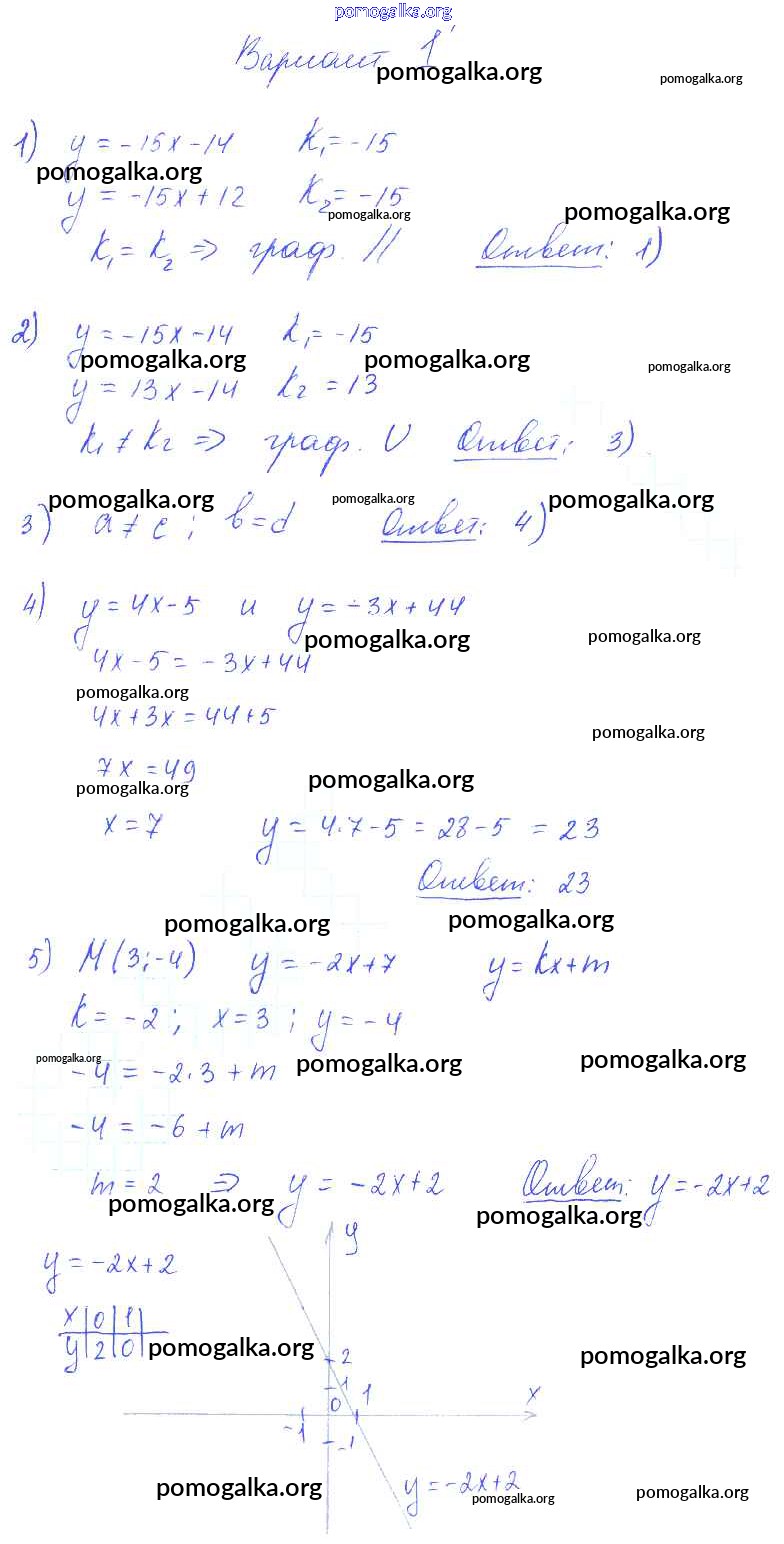 pomogalka.org
Вариант 1
pomogalka.org pomogalka.org
1) y = -15x - 14 K₁ = -15
pomogalka.org
y = -15x + 12 K₂ = -15
pomogalka.org pomogalka.org
K₁ = K₂ => граф. // Ответ: 1)
2) y = -15x - 14 K₁ = -15
pomogalka.org pomogalka.org pomogalka.org
y = 13x - 14 K₂ = 13
K₁ ≠ K₂ => граф. U Ответ: 3)
pomogalka.org pomogalka.org pomogalka.org
3) a ≠ c ; b = d Ответ: 4)
4) y = 4x - 5 и y = -3x + 44
pomogalka.org pomogalka.org
4x - 5 = -3x + 44
pomogalka.org
4x + 3x = 44 + 5
pomogalka.org
7x = 49
pomogalka.org pomogalka.org
x = 7 y = 4·7 - 5 = 28 - 5 = 23
Ответ: 23
pomogalka.org pomogalka.org
5) M(3; -4) y = -2x + 7 y = kx + m
k = -2 ; x = 3 ; y = -4
pomogalka.org pomogalka.org pomogalka.org
-4 = -2·3 + m
-4 = -6 + m
m = 2 => y = -2x + 2 Ответ: y = -2x + 2
pomogalka.org pomogalka.org
y
y = -2x + 2
x | 0 | 1
y | 2 | 0
pomogalka.org pomogalka.org
2
1
0 1 x
-1
-1
y = -2x + 2
pomogalka.org pomogalka.org pomogalka.org